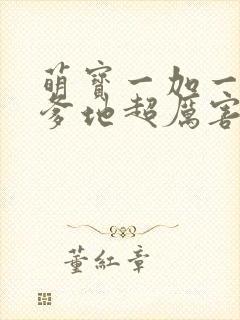 萌寶一加一
爹地超厲害
董紅章